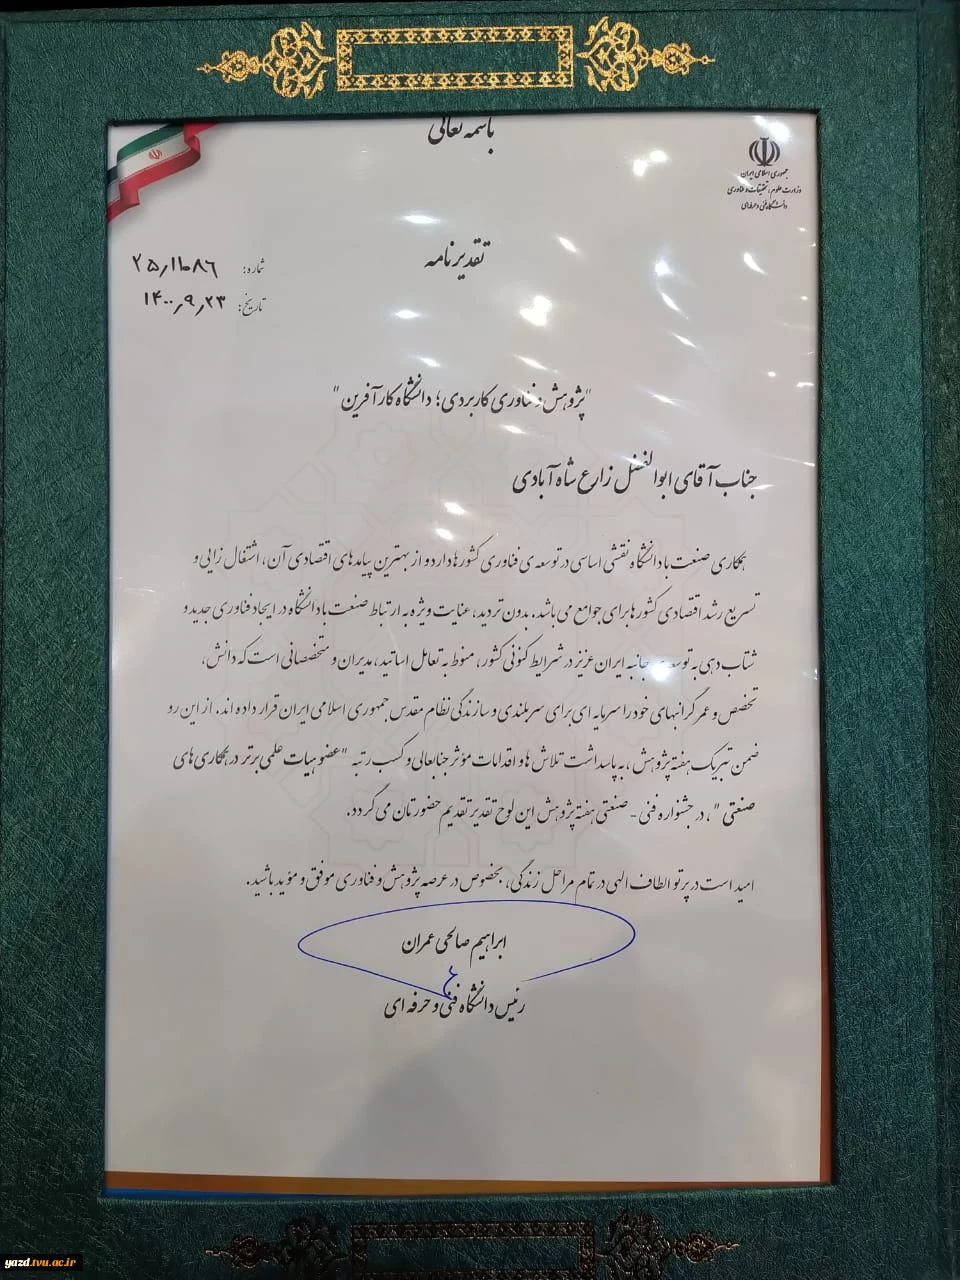 باسمه تعالی
جمهوری اسلامی ایران
وزارت علوم، تحقیقات و فناوری
دانشگاه فنی و حرفه‌ای
تقدیرنامه
شماره: ۲۵٫۱۱۰۸۶
تاریخ: ۱۴۰۰٫۹٫۲۳
"پژوهش و فناوری کاربردی؛ دانشگاه کارآفرین"
جناب آقای ابوالفضل زارع شاه آبادی
همکاری صنعت با دانشگاه نقشی اساسی در توسعه ی فناوری کشورها دارد و از بهترین پیامدهای اقتصادی آن، اشتغال زایی و
تسریع رشد اقتصادی کشورها برای جوامع می باشد. بدون تردید، عنایت ویژه به ارتباط صنعت با دانشگاه در ایجاد فناوری جدید و
شتاب دهی به توسعه جانبه ایران عزیز در شرایط کنونی کشور، منوط به تعامل اساتید، مدیران و متخصصانی است که دانش،
تخصص و عمر گرانبهای خود را سرمایه ای برای سربلندی و سازندگی نظام مقدس جمهوری اسلامی ایران قرار داده اند. از این رو
ضمن تبریک هفته پژوهش، به پاسداشت تلاش ها و اقدامات مؤثر جنابعالی و کسب رتبه "عضو هیات علمی برتر در همکاری های
صنعتی"، در جشنواره فنی - صنعتی هفته پژوهش این لوح تقدیر تقدیم حضورتان می گردد.
امید است در پرتو الطاف الهی در تمام مراحل زندگی، بخصوص در عرصه پژوهش و فناوری موفق و مؤید باشید.
ابراهیم صالحی عمران
رئیس دانشگاه فنی و حرفه ای
yazd.tvu.ac.ir